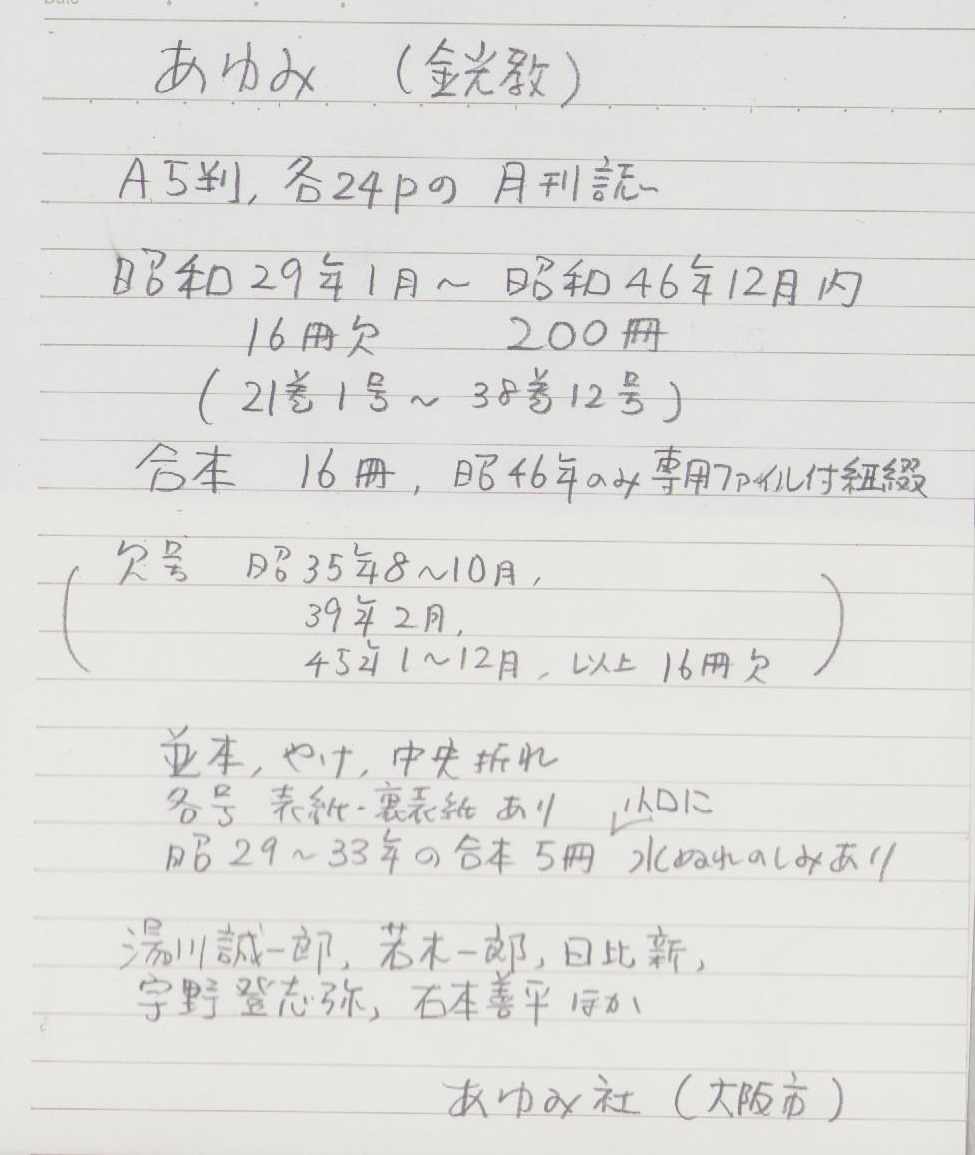 あゆみ (金光教)
A5判, 各24pの 月刊誌
昭和29年1月～昭和46年12月内
16冊欠 200冊
(21巻1号～38巻12号)
合本 16冊, 昭46年のみ専用ファイル付紐綴
欠号 昭35年8～10月,
39年2月,
45年1～12月, 以上 16冊欠
並本, やけ, 中央折れ
各号 表紙・裏表紙 あり 小口に
昭29～33年の合本5冊 水ぬれのしみあり
湯川誠一郎, 若木一郎, 日比新,
宇野登志弥, 石本善平 ほか
あゆみ社 (大阪市)